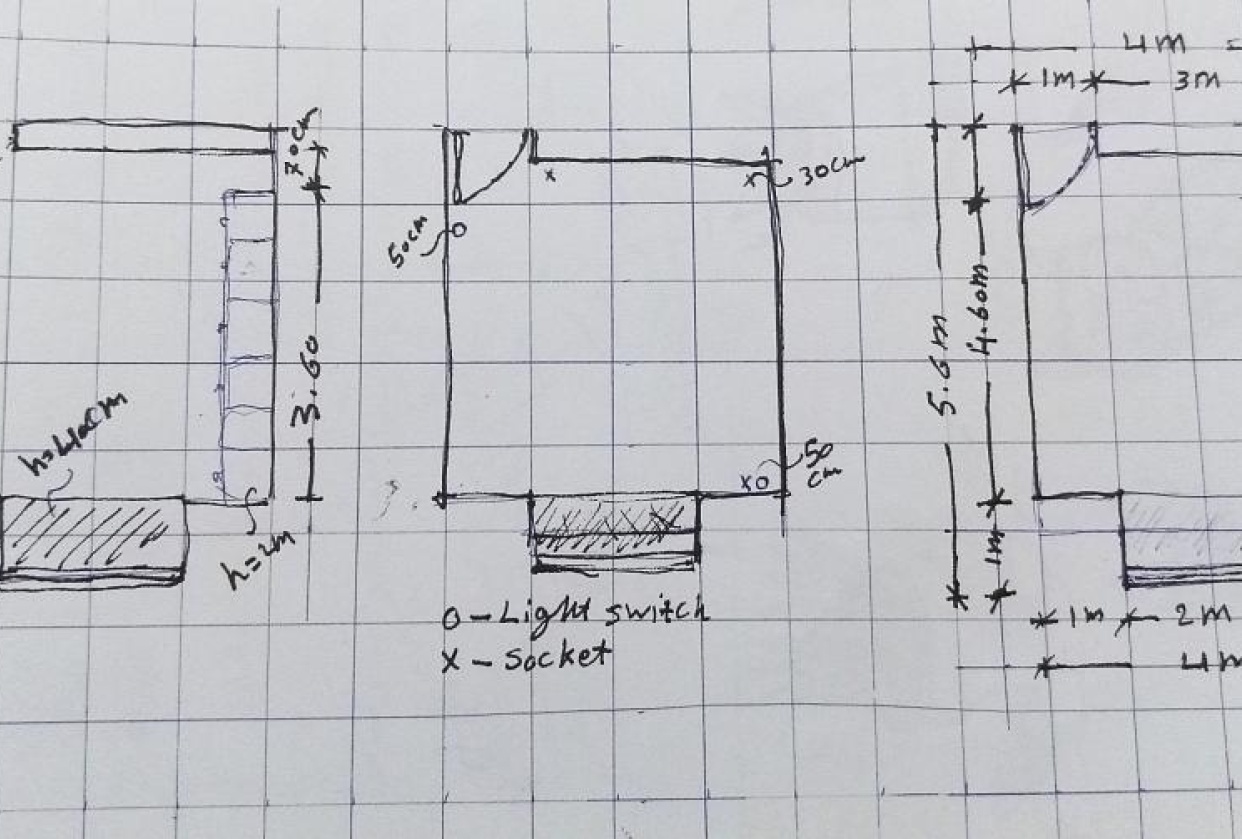 70cm
3.60
h=40cm
h=2m
50cm
x
x
30cm
O
xo
50
cm
O - Light switch
X - Socket
4m =
1m
3m
5.6m
4.60m
1m
1m
2m
4m